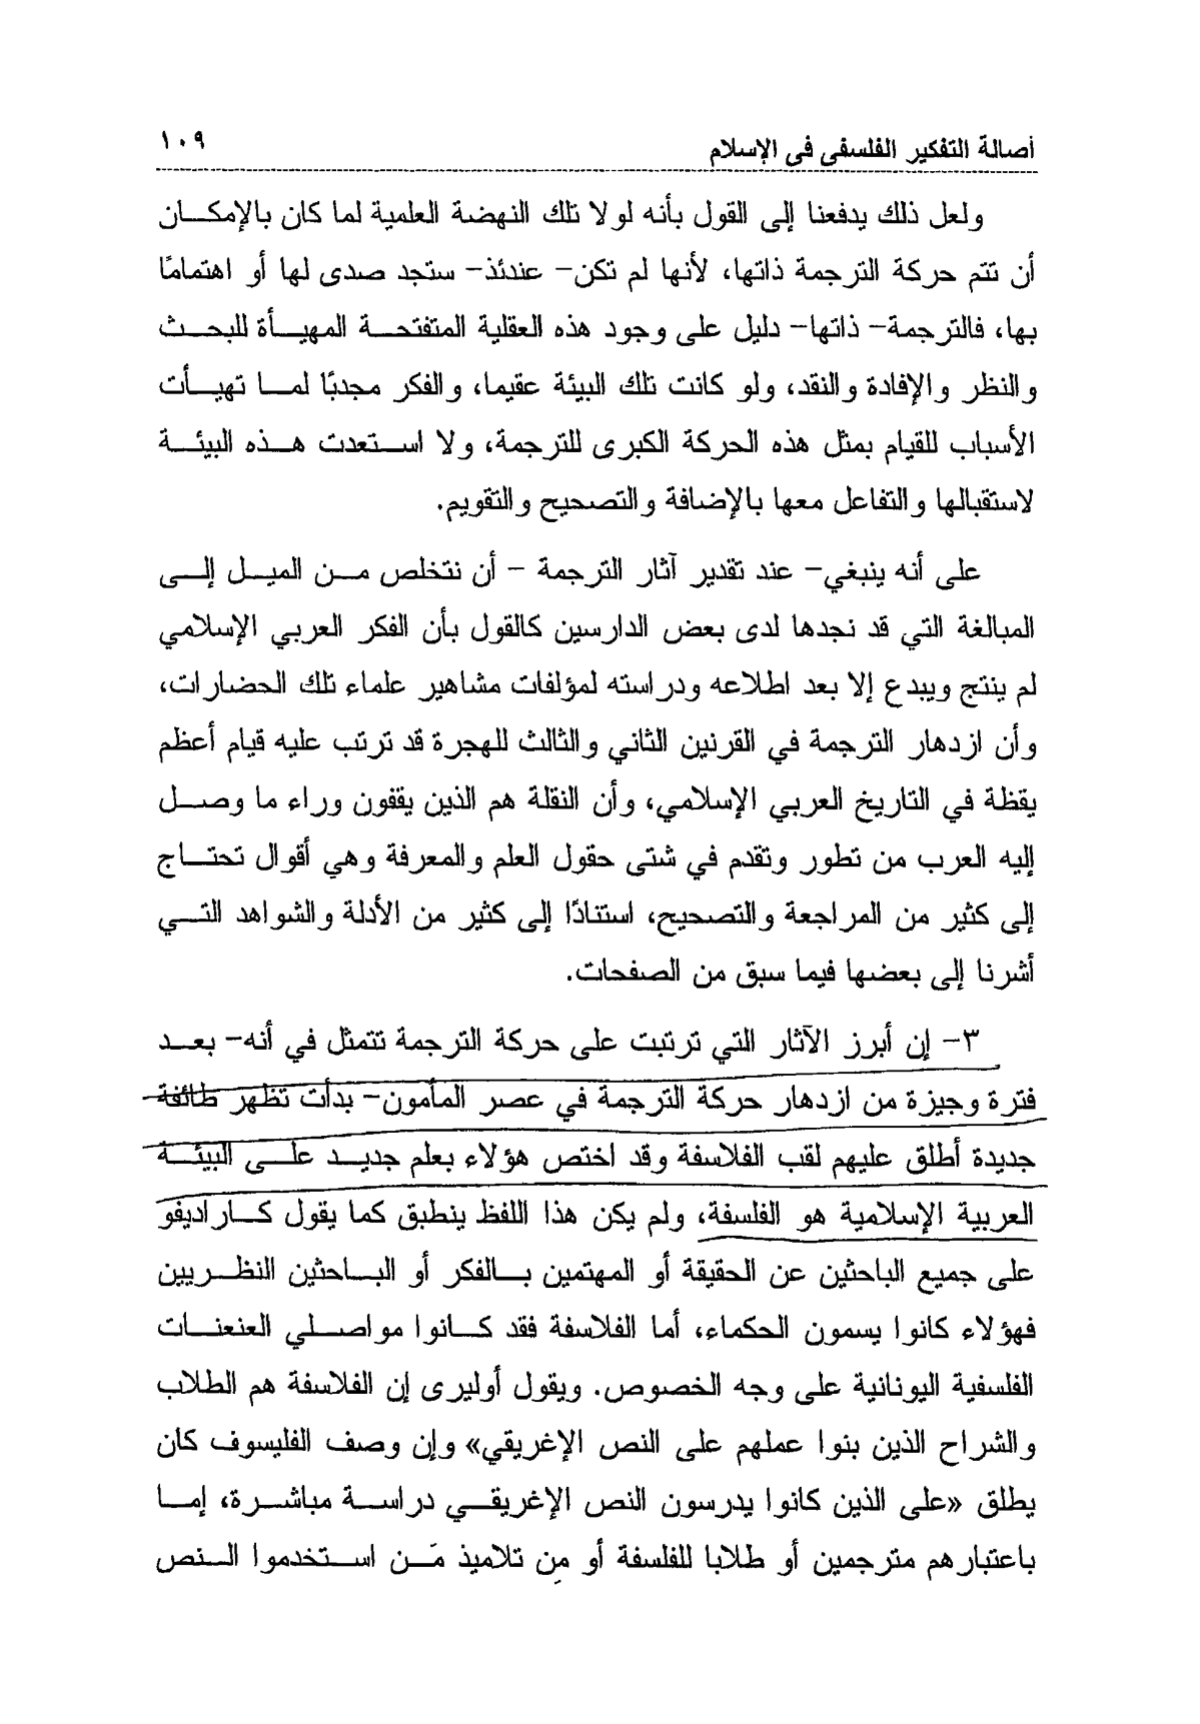 أصالة التفكير الفلسفى فى الإسلام ١٠٩
ولعل ذلك يدفعنا إلى القول بأنه لولا تلك النهضة العلمية لما كان بالإمكان
أن تتم حركة الترجمة ذاتها، لأنها لم تكن- عندئذ- ستجد صدى لها أو اهتمامًا
بها، فالترجمة- ذاتها- دليل على وجود هذه العقلية المتفتحة المهيأة للبحث
والنظر والإفادة والنقد، ولو كانت تلك البيئة عقيما، والفكر مجدبًا لما تهيأت
الأسباب للقيام بمثل هذه الحركة الكبرى للترجمة، ولا استعدت هذه البيئة
لاستقبالها والتفاعل معها بالإضافة والتصحيح والتقويم.
على أنه ينبغي- عند تقدير آثار الترجمة - أن نتخلص من الميل إلى
المبالغة التي قد نجدها لدى بعض الدارسين كالقول بأن الفكر العربي الإسلامي
لم ينتج ويبدع إلا بعد اطلاعه ودراسته لمؤلفات مشاهير علماء تلك الحضارات،
وأن ازدهار الترجمة في القرنين الثاني والثالث للهجرة قد ترتب عليه قيام أعظم
يقظة في التاريخ العربي الإسلامي، وأن النقلة هم الذين يقفون وراء ما وصل
إليه العرب من تطور وتقدم في شتى حقول العلم والمعرفة وهي أقوال تحتاج
إلى كثير من المراجعة والتصحيح، استنادًا إلى كثير من الأدلة والشواهد التي
أشرنا إلى بعضها فيما سبق من الصفحات.
٣- إن أبرز الآثار التي ترتبت على حركة الترجمة تتمثل في أنه- بعد
فترة وجيزة من ازدهار حركة الترجمة في عصر المأمون- بدأت تظهر طائفة
جديدة أطلق عليهم لقب الفلاسفة وقد اختص هؤلاء بعلم جديد على البيئة
العربية الإسلامية هو الفلسفة، ولم يكن هذا اللفظ ينطبق كما يقول كاراديفو
على جميع الباحثين عن الحقيقة أو المهتمين بالفكر أو الباحثين النظريين
فهؤلاء كانوا يسمون الحكماء، أما الفلاسفة فقد كانوا مواصلي العنعنات
الفلسفية اليونانية على وجه الخصوص. ويقول أوليرى إن الفلاسفة هم الطلاب
والشراح الذين بنوا عملهم على النص الإغريقي» وإن وصف الفليسوف كان
يطلق «على الذين كانوا يدرسون النص الإغريقي دراسة مباشرة، إما
باعتبارهم مترجمين أو طلابا للفلسفة أو مِن تلاميذ مَن استخدموا النص